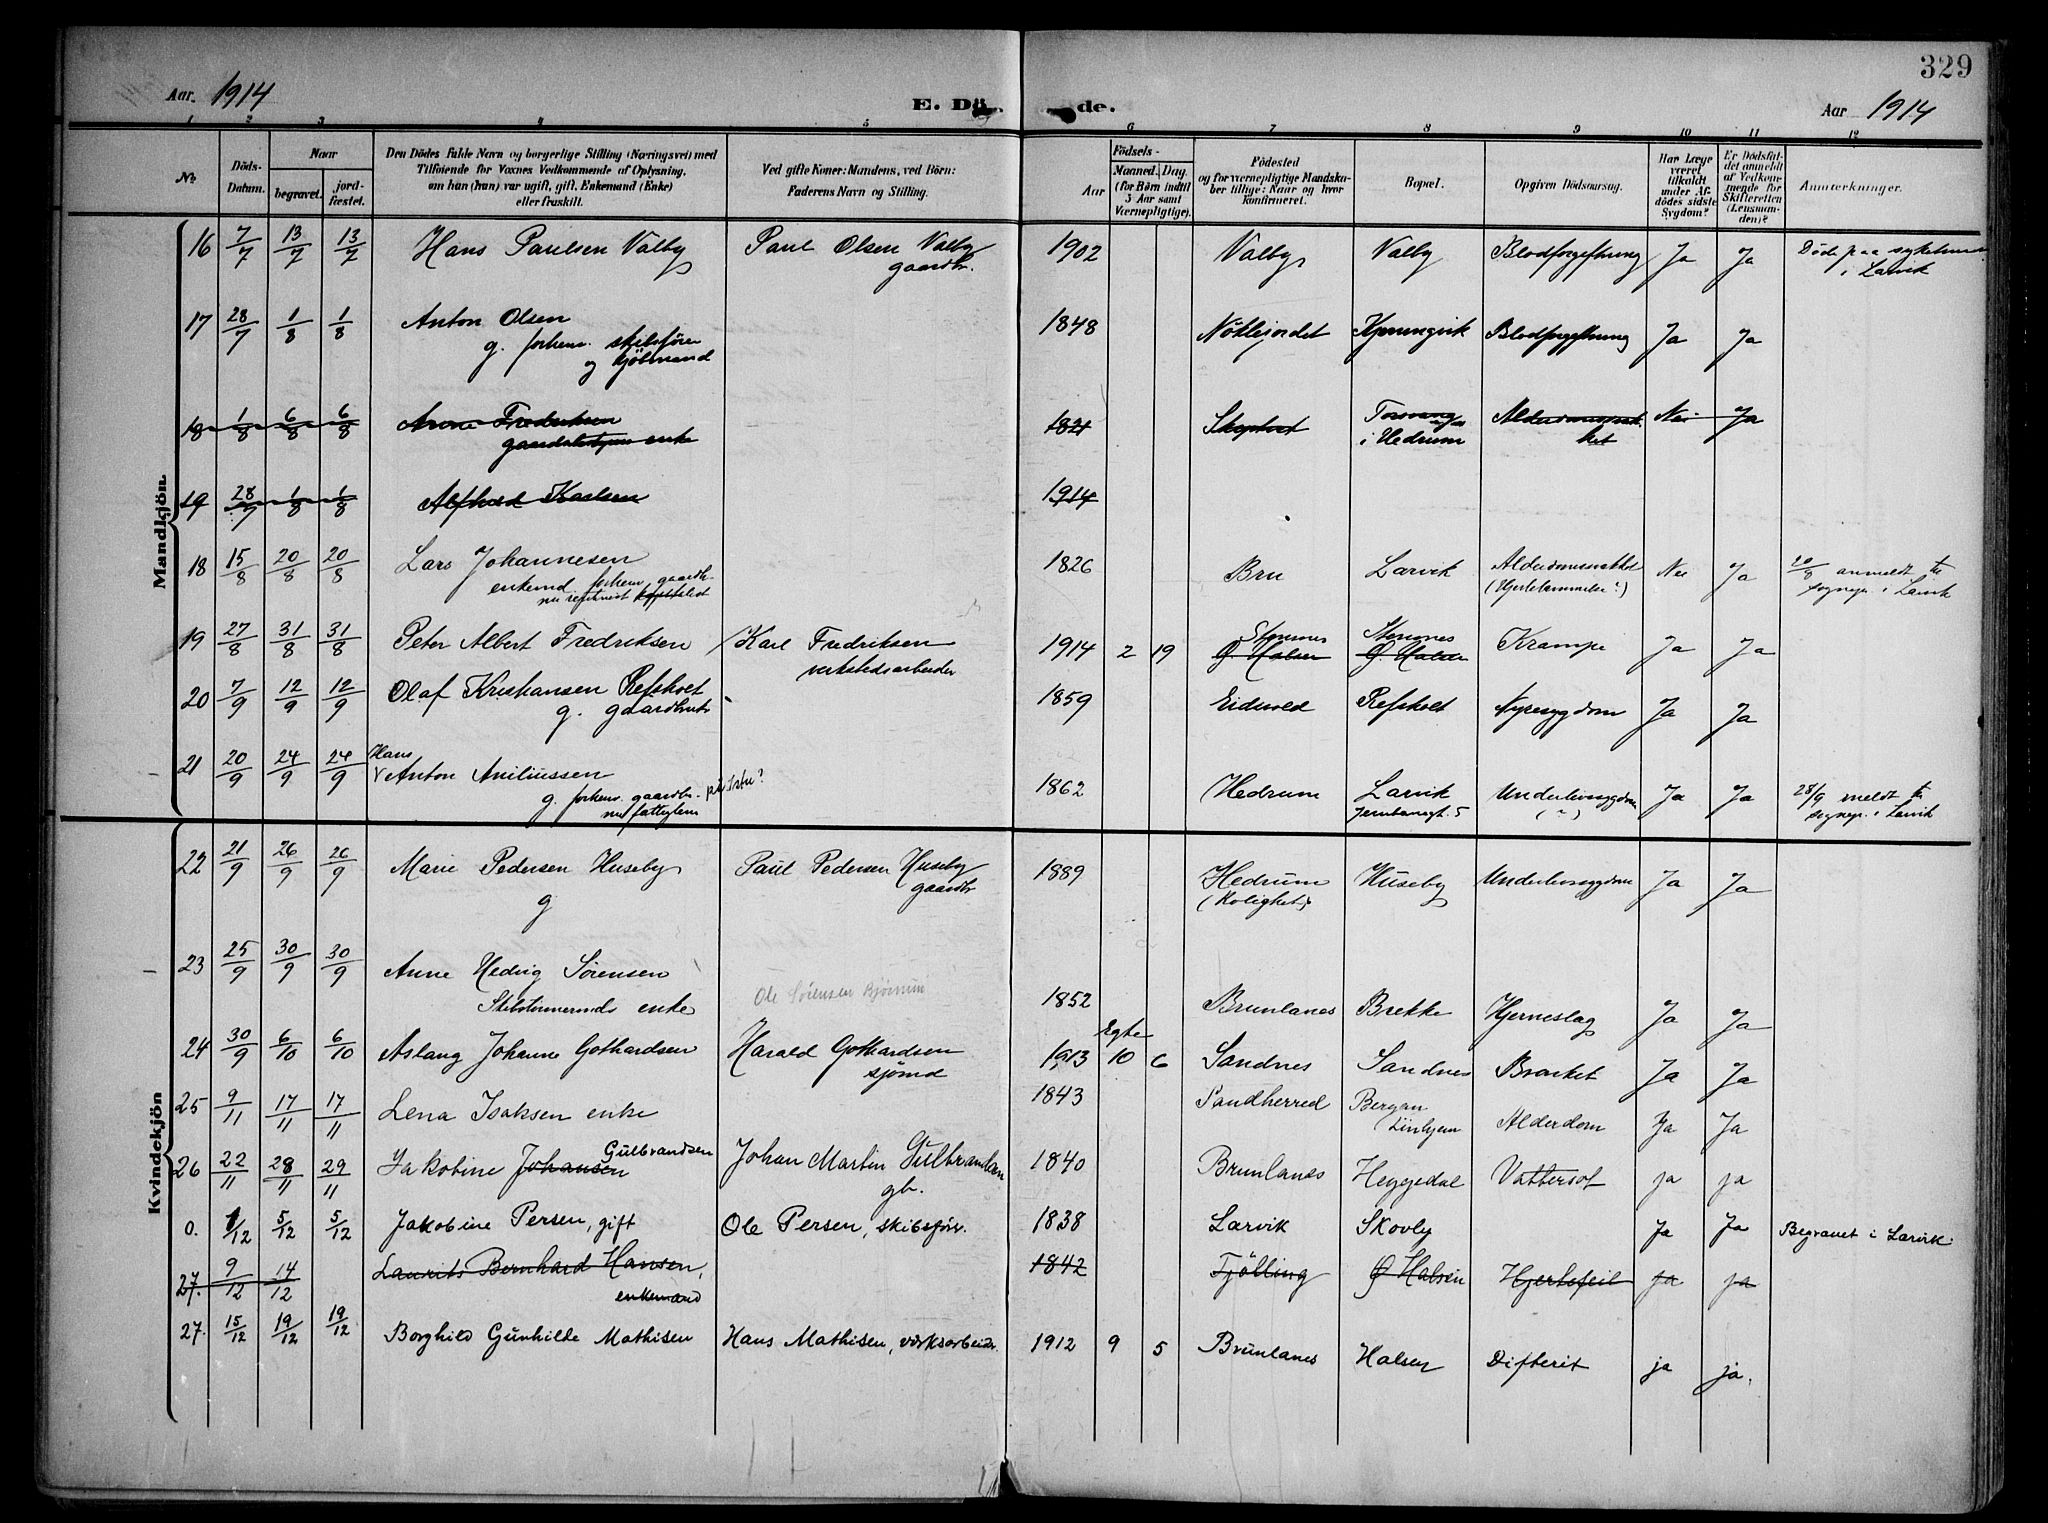 329
Aar 1914
E. Dö de.
Aar 1914
1 2 3 4 5 6 7 8 9 10 11 12
No
Döds-Datum.
Naar
begravet.
jord-fæstet.
Den Dödes fulde Navn og borgerlige Stilling (Næringsvei) med
Tilföiende for Voxnes Vedkommende af Oplysning,
om han (hun) var ugift, gift, Enkemand (Enke)
eller fraskilt.
Ved gifte Koner: Mandens, ved Börn:
Faderens Navn og Stilling.
Aar
Födsels-
Maaned. Dag.
(for Börn indtil
5 Aar samt
Værnepligtige).
Födested
og for værnepligtige Mandska-
ber tillige: Naar og hvor
konfirmeret.
Bopæl.
Opgiven Dödsaarsag.
Har Læge
været
tilkaldt
under Af-
dödes sidste
Sygdom?
Er Dödsfal-
det anmeldt
af Vedkom-
mende for
Skifteretten
(Lensman-
den)?
Anmerkninger.
Mandkjön.
16 7/7 13/7 13/7 Hans Paulsen Valby Paul Olsen Valby 1902 Valby Valby Blodforgiftning Ja Ja Döde paa
gaardbr. i Larvik
17 28/7 1/8 1/8 Anton Olsen 1848 Nöklejordet Kjerringvik Blodforgiftning Ja Ja
g. forhenv. skibsförer
og kjöbmand
18 1/8 6/8 6/8 Anne Fredriksen 1821 i Hedrum Nei Ja
enke
19 28/7 1/8 1/8 Karlsen 1914
18 15/8 20/8 20/8 Lars Johannesen 1826 Bru Larvik Alderdomssvakhet Nei Ja 20/8 anmeldt til
enkemd forhenv. gaardbr. sognepr. i Larvik
19 27/8 31/8 31/8 Peter Albert Fredriksen Karl Fredriksen 1914 2 19 Stennes Stennes Krampe Ja Ja
verkstedsarbeider Ø. Halsen Ø. Halsen
20 7/9 12/9 12/9 Olaf Kristiansen Refsholt 1859 Eidsvold Refsholt Nyresygdom Ja Ja
g. gaardbruk
21 20/9 24/9 24/9 Hans
Anton Aniliussen 1862 Hedrum Larvik Underlivssygdom Ja Ja 28/9 meldt til
g. forhenv. gaardbr. på Istre? Jernbanegt. 5 (?) sognepr. i Larvik
nu fattiglem
Kvindekjön
22 21/9 26/9 26/9 Marie Pedersen Huseby Paul Pedersen Huseby 1889 Hedrum Huseby Underlivssygdom Ja Ja
g gaardbr
23 25/9 30/9 30/9 Anne Hedvig Sörensen Ole Sörensen Bjönnum 1852 Brunlanes Brekke Hjerneslag Ja Ja
Skibstömmermds enke
Egte
24 30/9 6/10 6/10 Aslaug Johanne Gothardsen Harald Gothardsen 1913 10 6 Sandnes Sandnes Ja Ja
sjömd
25 9/11 17/11 17/11 Lena Isaksen enke 1843 Sandherred Bergan Alderdom Ja Ja
26 22/11 28/11 29/11 Jakobine Johansen Gulbrandsen Johan Martin Gulbrandsen 1840 Brunlanes Heggedal Vattersot ja ja
gb.
0. 1/12 5/12 5/12 Jakobine Persen, gift Ole Persen, skibsför. 1838 Larvik Skovly Ja Ja Begravet i Larvik.
27. 9/12 14/12 Laurits Bernhard Hansen, 1842 Tjölling Ø Halsen Hjertefeil ja ja
enkemand
27. 15/12 19/12 19/12 Borghild Gunhilde Mathisen Hans Mathisen, verksarbeider 1912 9 5 Brunlanes Halsen Difterit ja ja.